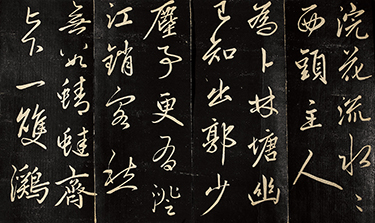 浣花流水〻
西頭主人
為卜林塘幽
已知出郭少
塵事更有澄
江銷客愁
無數蜻蜓齊
上下一雙鸂